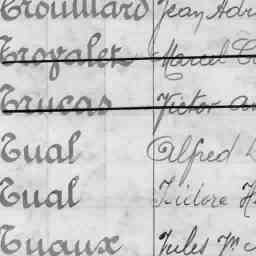 Trouillard Jean Adri
Troyalet Marcel
Trucas Victor
Tual Alfred
Tual Isidore H
Tuaux Jules M